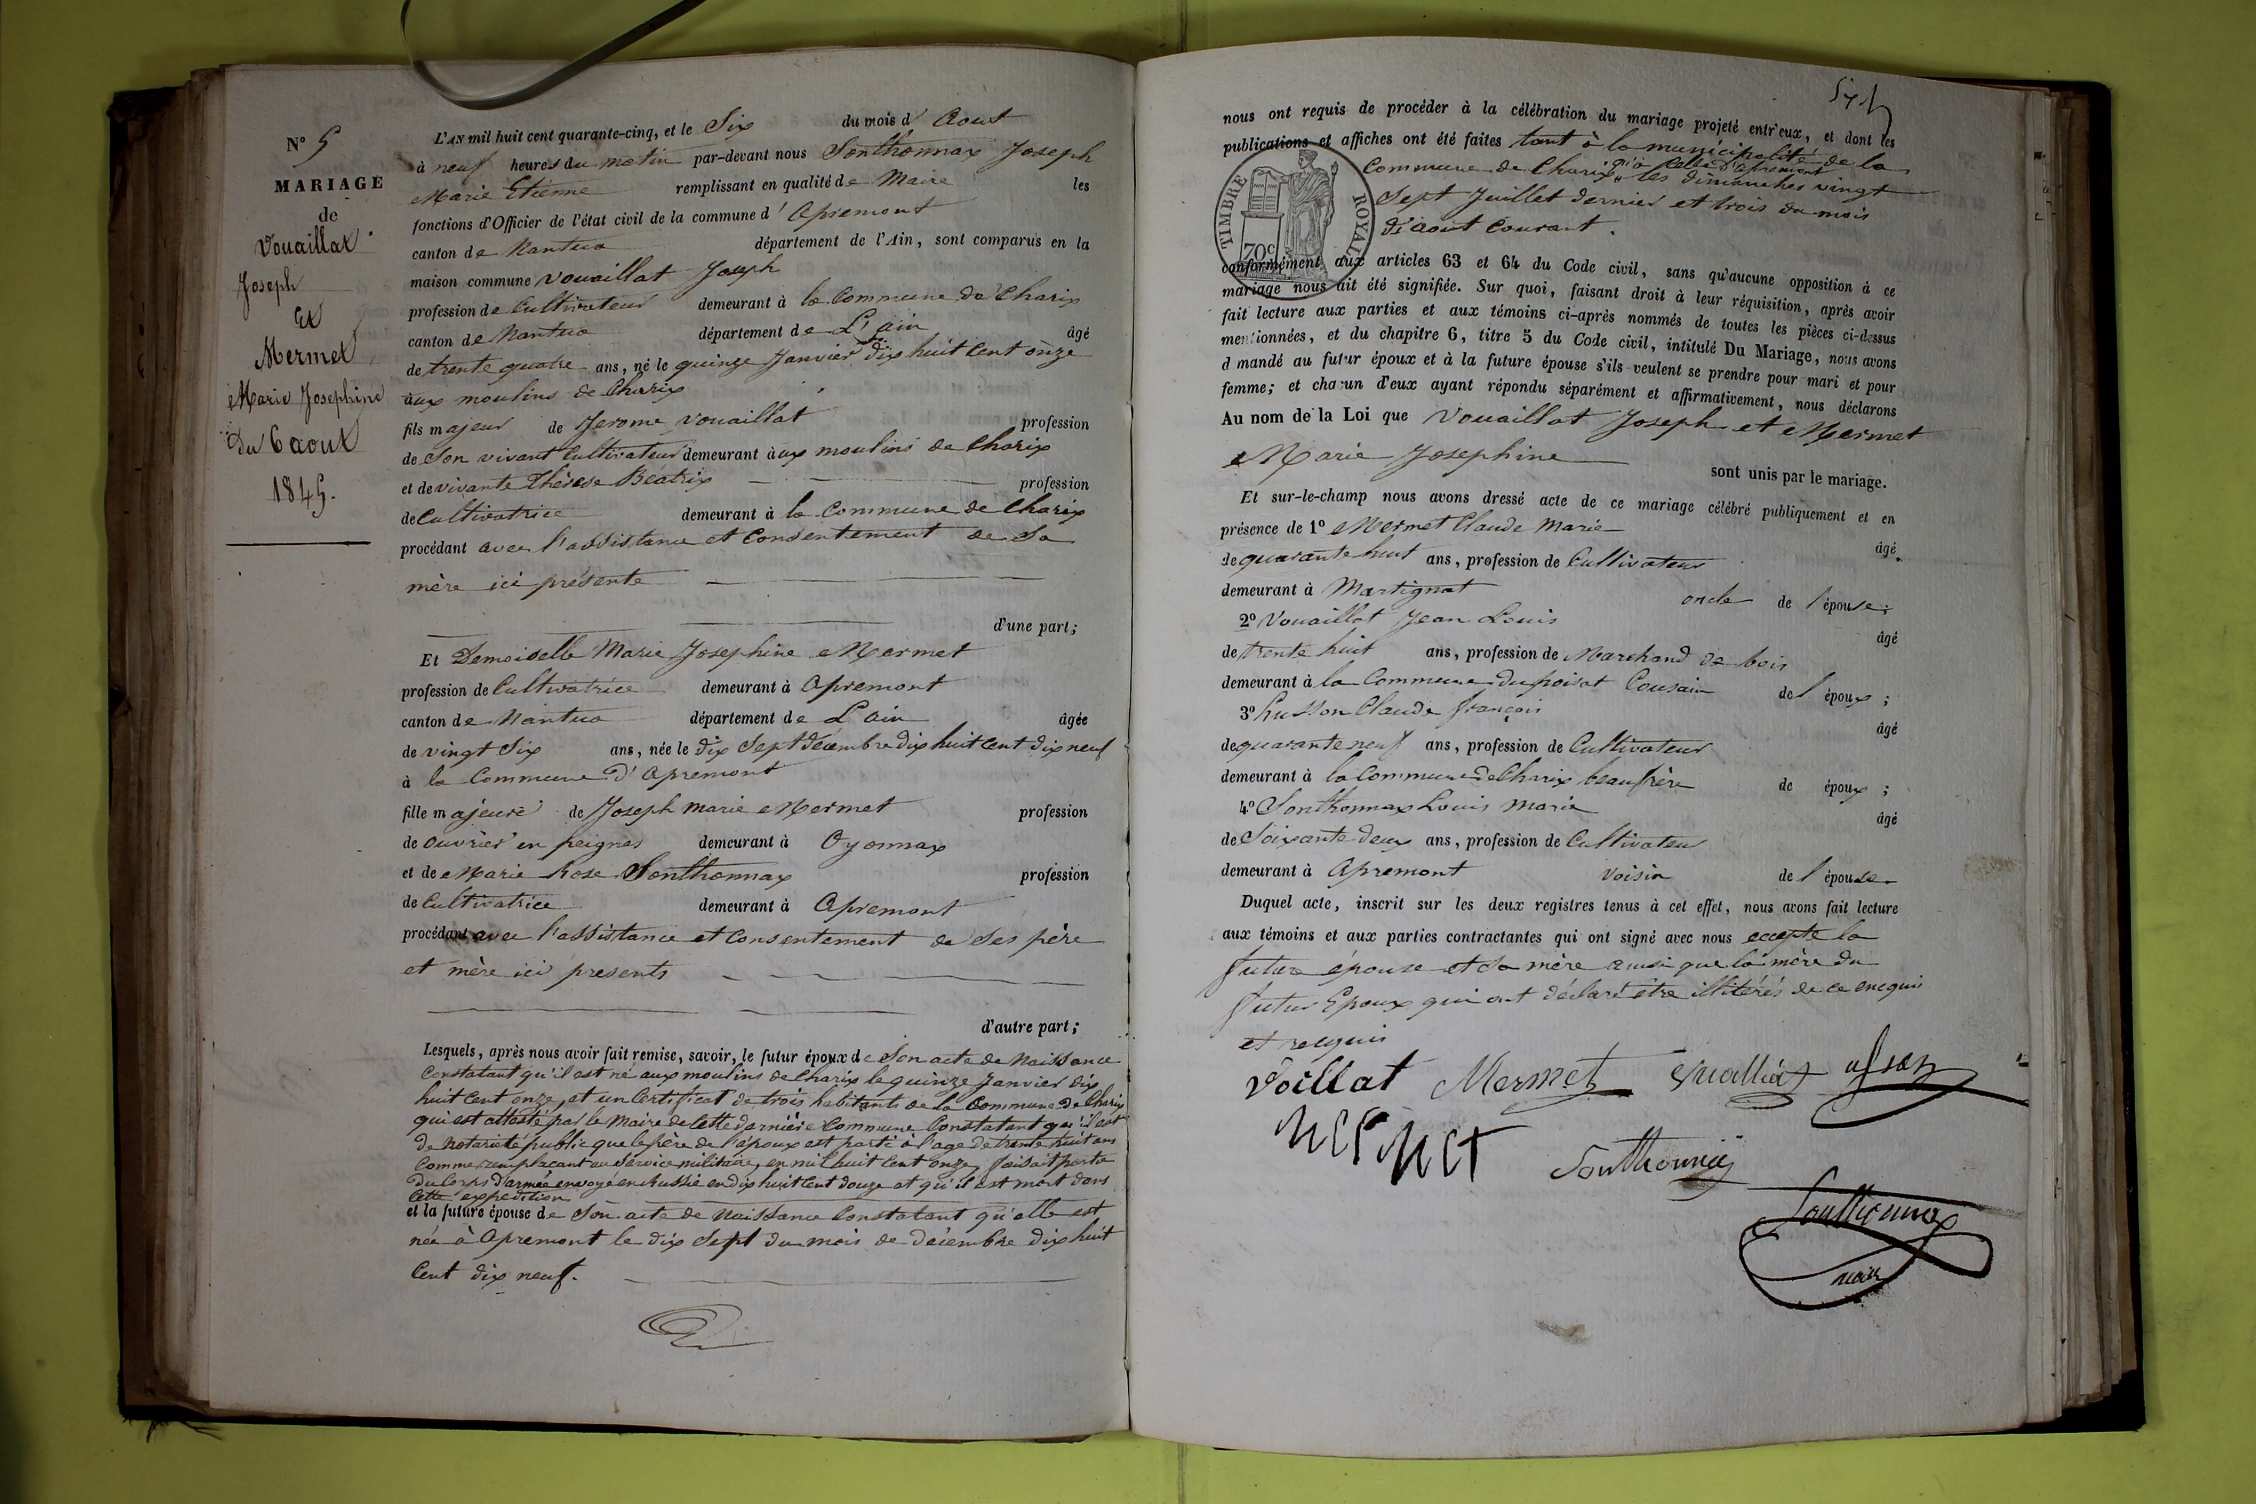 N° 5
MARIAGE
de
Vouaillat
Joseph
Et
Mermet
Marie Josephine
du 6 aout
1845.
L'AN mil huit cent quarante-cinq, et le Six du mois d' Aout
à neuf heures du matin par-devant nous Sonthonnax Joseph
Marie Etienne remplissant en qualité de Maire les
fonctions d'Officier de l'état civil de la commune d' Apremont
canton de Nantua département de l'Ain, sont comparus en la
maison commune Vouaillat Joseph
profession de Cultivateur demeurant à la Commune de Charix
canton de Nantua département de L'ain âgé
de trente quatre ans, né le quinze Janvier dix huit Cent onze
aux moulins de Charix
fils majeur de Jerome Vouaillat profession
de Son vivant Cultivateur demeurant aux moulins de Charix
et de vivante Thérèse Béatrix profession
de Cultivatrice demeurant à la Commune de Charix
procédant avec l'assistance et Consentement de Sa
mère ici présente
d'une part;
Et Demoiselle Marie Josephine Mermet
profession de Cultivatrice demeurant à Apremont
canton de Nantua département de L'ain âgée
de vingt Six ans, née le dix Sept décembre dix huit Cent dix neuf
à la Commune d'Apremont
fille majeure de Joseph Marie Mermet profession
de ouvrier en peignes demeurant à Oyonnax
et de Marie Rose Sonthonnax profession
de Cultivatrice demeurant à Apremont
procédant avec l'assistance et Consentement de Ses père
et mère ici présents
d'autre part;
Lesquels, après nous avoir fait remise, savoir, le futur époux de Son acte de Naissance
Constatant qu'il est né aux moulins de Charix le quinze Janvier dix
huit Cent onze, et un Certificat de trois habitants de la Commune de Charix
qui est attesté par le Maire de Cette dernière Commune Constatant que il est
de Notorieté public que le père de l'époux est parti à l'age de trente huit ans
Comme remplacant au Service militaire, en mil huit Cent onze, faisait partie
du Corps d'armée envoyé en Russie en dix huit Cent douze et qu'il est mort dans
Cette expedition
et la future épouse de Son acte de Naissance Constatant qu'elle est
née à Apremont le dix Sept du mois de décembre dix huit
Cent dix neuf.
nous ont requis de procéder à la célébration du mariage projeté entr'eux, et dont les
publications et affiches ont été faites tant à la municipalité de la
Commune de Charix qu'à Celle d'apremont les dimanches vingt
Sept Juillet dernier et trois du mois
d'aout Courant.
TIMBRE ROYAL
70c
conformément aux articles 63 et 64 du Code civil, sans qu'aucune opposition à ce
mariage nous ait été signifiée. Sur quoi, faisant droit à leur réquisition, après avoir
fait lecture aux parties et aux témoins ci-après nommés de toutes les pièces ci-dessus
mentionnées, et du chapitre 6, titre 5 du Code civil, intitulé Du Mariage, nous avons
d mandé au futur époux et à la future épouse s'ils veulent se prendre pour mari et pour
femme; et chacun d'eux ayant répondu séparément et affirmativement, nous déclarons
Au nom de la Loi que Vouaillat Joseph et Mermet
Marie Josephine sont unis par le mariage.
Et sur-le-champ nous avons dressé acte de ce mariage célébré publiquement et en
présence de 1° Mermet Claude Marie âgé
de quarante huit ans, profession de Cultivateur
demeurant à Martignat oncle de l'épouse;
2° Vouaillat Jean Louis âgé
de trente huit ans, profession de Marchand de bois
demeurant à la Commune du poisat Cousain de l'époux;
3° husson Claude françois âgé
de quarante neuf ans, profession de Cultivateur
demeurant à la Commune de Charix beaufrère de époux;
4° Sonthonnax Louis Marie âgé
de Soixante deux ans, profession de Cultivateur
demeurant à Apremont voisin de l'épouse
Duquel acte, inscrit sur les deux registres tenus à cet effet, nous avons fait lecture
aux témoins et aux parties contractantes qui ont signé avec nous excepte la
future épouse et Sa mère ainsi que la mère du
futur Epoux qui ont déclaré etre illitérés de ce enquis
et requis
Voillat Mermet
Mermet
Sonthonnax
Sonthonnax
maire